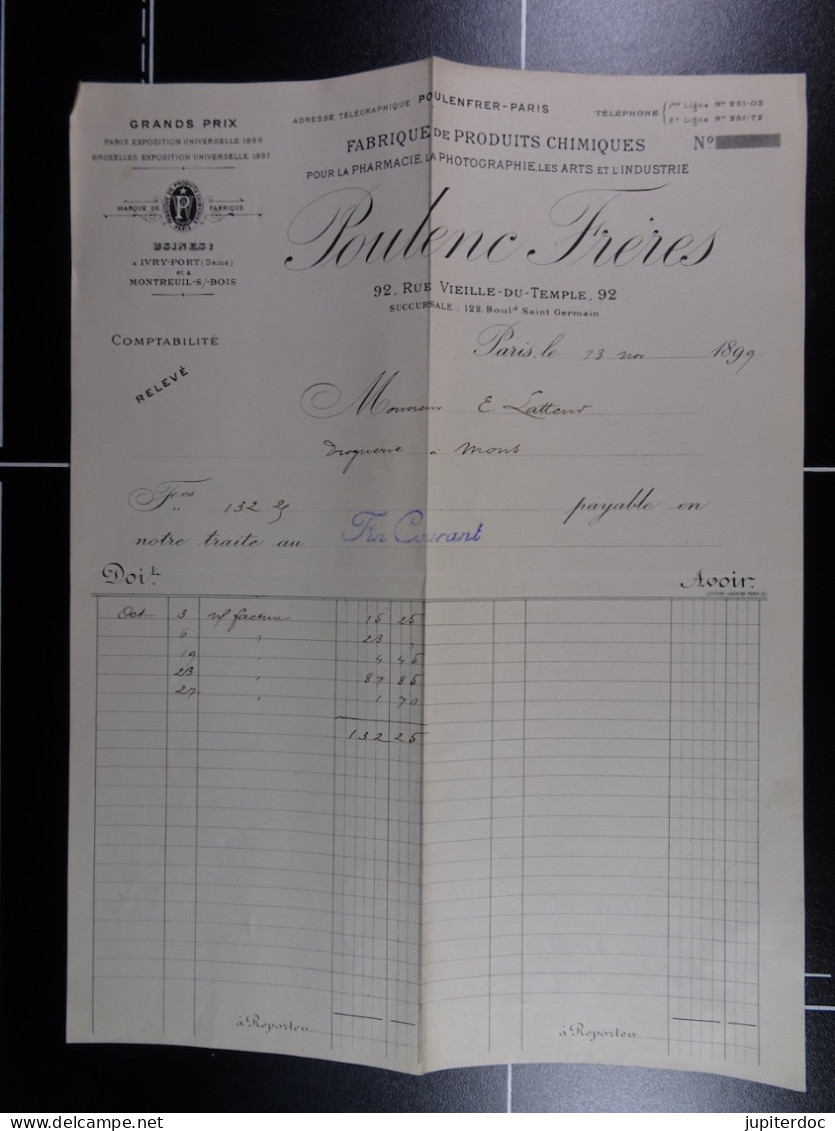 GRANDS PRIX
PARIS EXPOSITION UNIVERSELLE 1889
BRUXELLES EXPOSITION UNIVERSELLE 1897
MARQUE DE FABRIQUE
USINES:
A IVRY-PORT (Seine)
et à
MONTREUIL-S/-BOIS
ADRESSE TÉLÉGRAPHIQUE POULENFRER-PARIS
TÉLÉPHONE
1ère Ligne No 251-03
2e Ligne No 251-72
FABRIQUE DE PRODUITS CHIMIQUES
No
POUR LA PHARMACIE, LA PHOTOGRAPHIE, LES ARTS ET L'INDUSTRIE
Poulenc Frères
92, RUE VIEILLE-DU-TEMPLE, 92
SUCCURSALE : 122, Bould Saint Germain
COMPTABILITÉ
RELEVÉ
Paris, le 13 nov 1899
Monsieur E. Latteur
Droguerie à Mons
Fcs 132 25 payable en
notre traite au Fin Courant
Doit. Avoir.
Oct 3 n/ facture 15 25
6 " 23 "
19 " 4 45
23 " 87 85
27 " 1 70
132 25
à Reporter
à Reporter
jupiterdoc